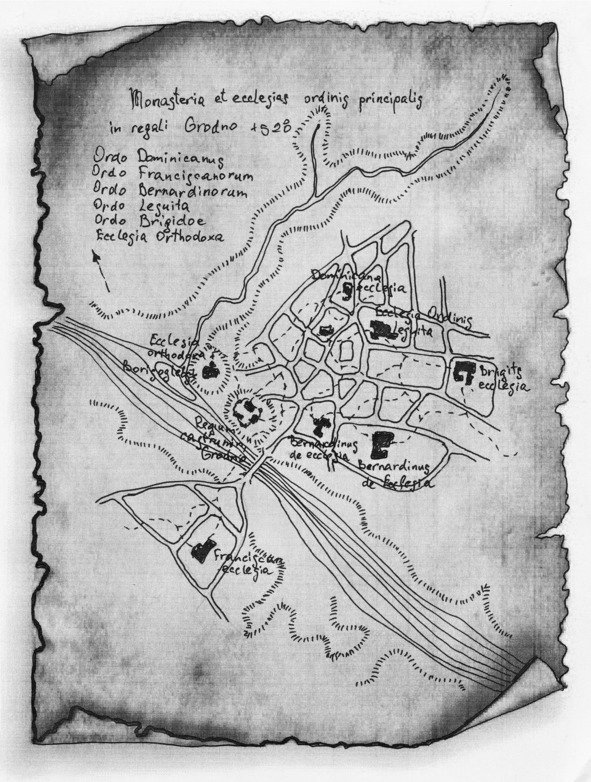 Monasteria et ecclesias ordinis principalis
in regali Grodno
Ordo Dominicanus
Ordo Franciscanorum
Ordo Bernardinorum
Ordo Leguita
Ordo Brigidoe
Ecclesia Orthodoxa
Dominicana
ecclesia
Ecclesia Ordinis
Leguita
Ecclesia
orthodoxa
Borisoglebs
Brigits
ecclesia
Regum
castrum in
Grodno
Bernardinus
de ecclesia
Bernardinus
de Ecclesia
Franciscan
ecclesia